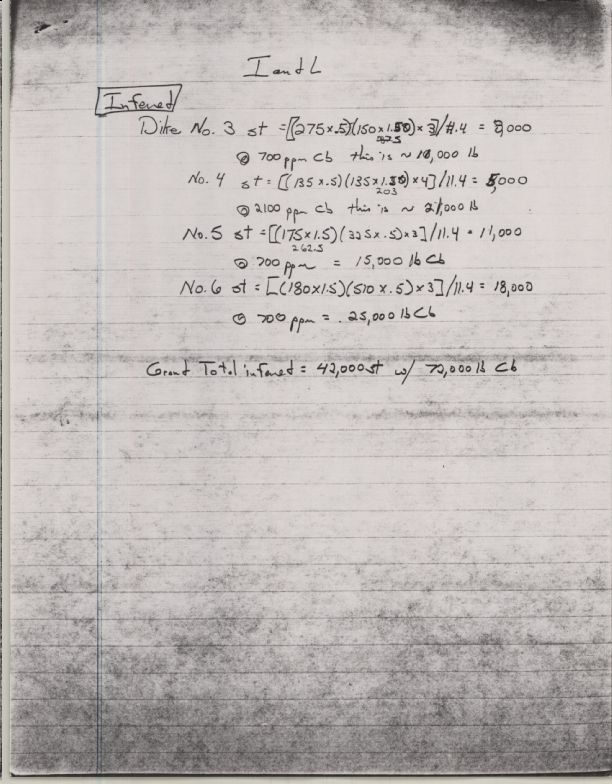 I and L
Inferred
Dike No. 3 st = [(275 x .5)(150 x 1.50) x 3]/11.4 = 8,000
@ 700 ppm Cb this is ~ 10,000 lb
No. 4 st = [(135 x .5)(135 x 1.50) x 4]/11.4 = 5,000
203
@ 2100 ppm Cb this is ~ 21,000 lb
No. 5 st = [(175 x 1.5)(325 x .5) x 3]/11.4 = 11,000
262.5
@ 700 ppm = 15,000 lb Cb
No. 6 st = [(180 x 1.5)(510 x .5) x 3]/11.4 = 18,000
@ 700 ppm = 25,000 lb Cb
Grand Total inferred = 42,000 st w/ 72,000 lb Cb